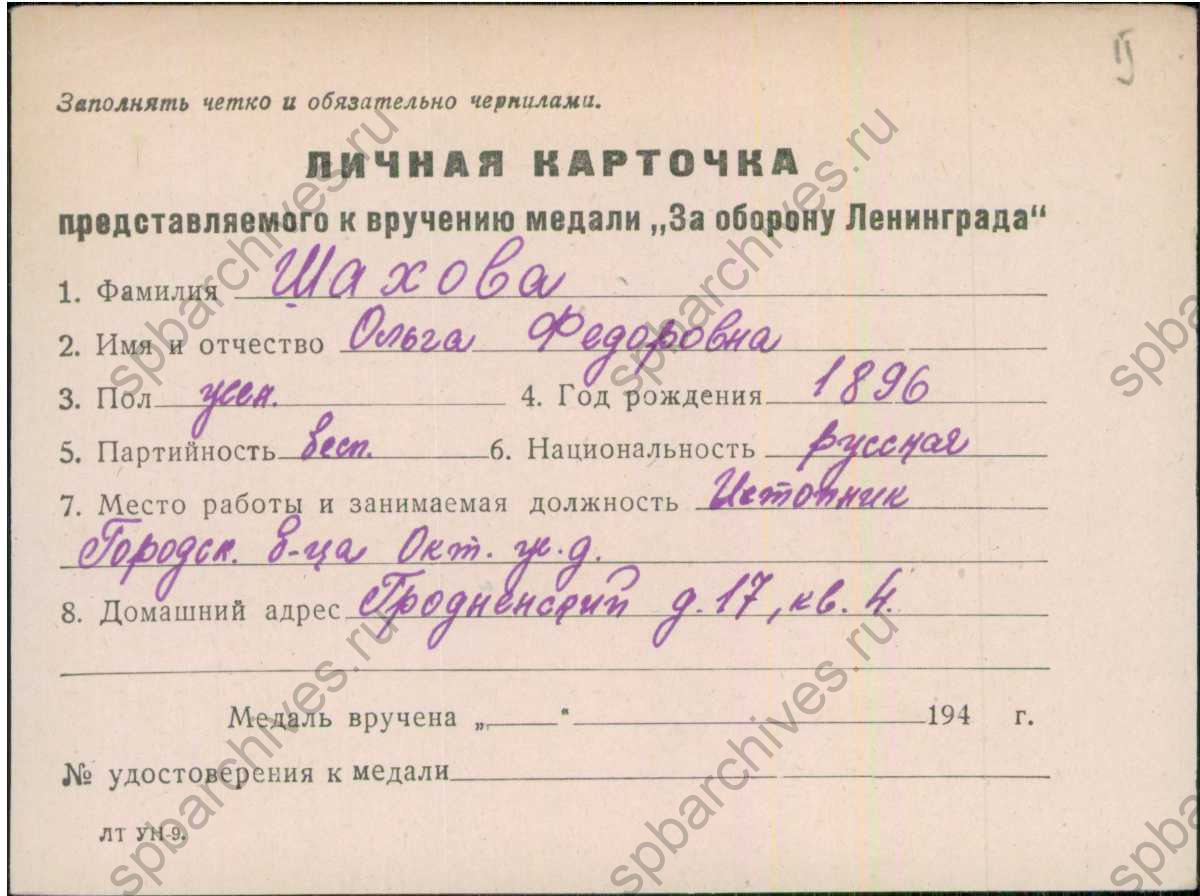 Заполнять четко и обязательно чернилами.
ЛИЧНАЯ КАРТОЧКА
представляемого к вручению медали „За оборону Ленинграда“
1. Фамилия Шахова
2. Имя и отчество Ольга Федоровна
3. Пол жен. 4. Год рождения 1896
5. Партийность бесп. 6. Национальность русская
7. Место работы и занимаемая должность Истопник
Городск. б-ца Окт. ж.д.
8. Домашний адрес Гродненский д.17, кв. 4.
Медаль вручена „ “ 194 г.
№ удостоверения к медали
ЛТ УН-9.
spbarchives.ru